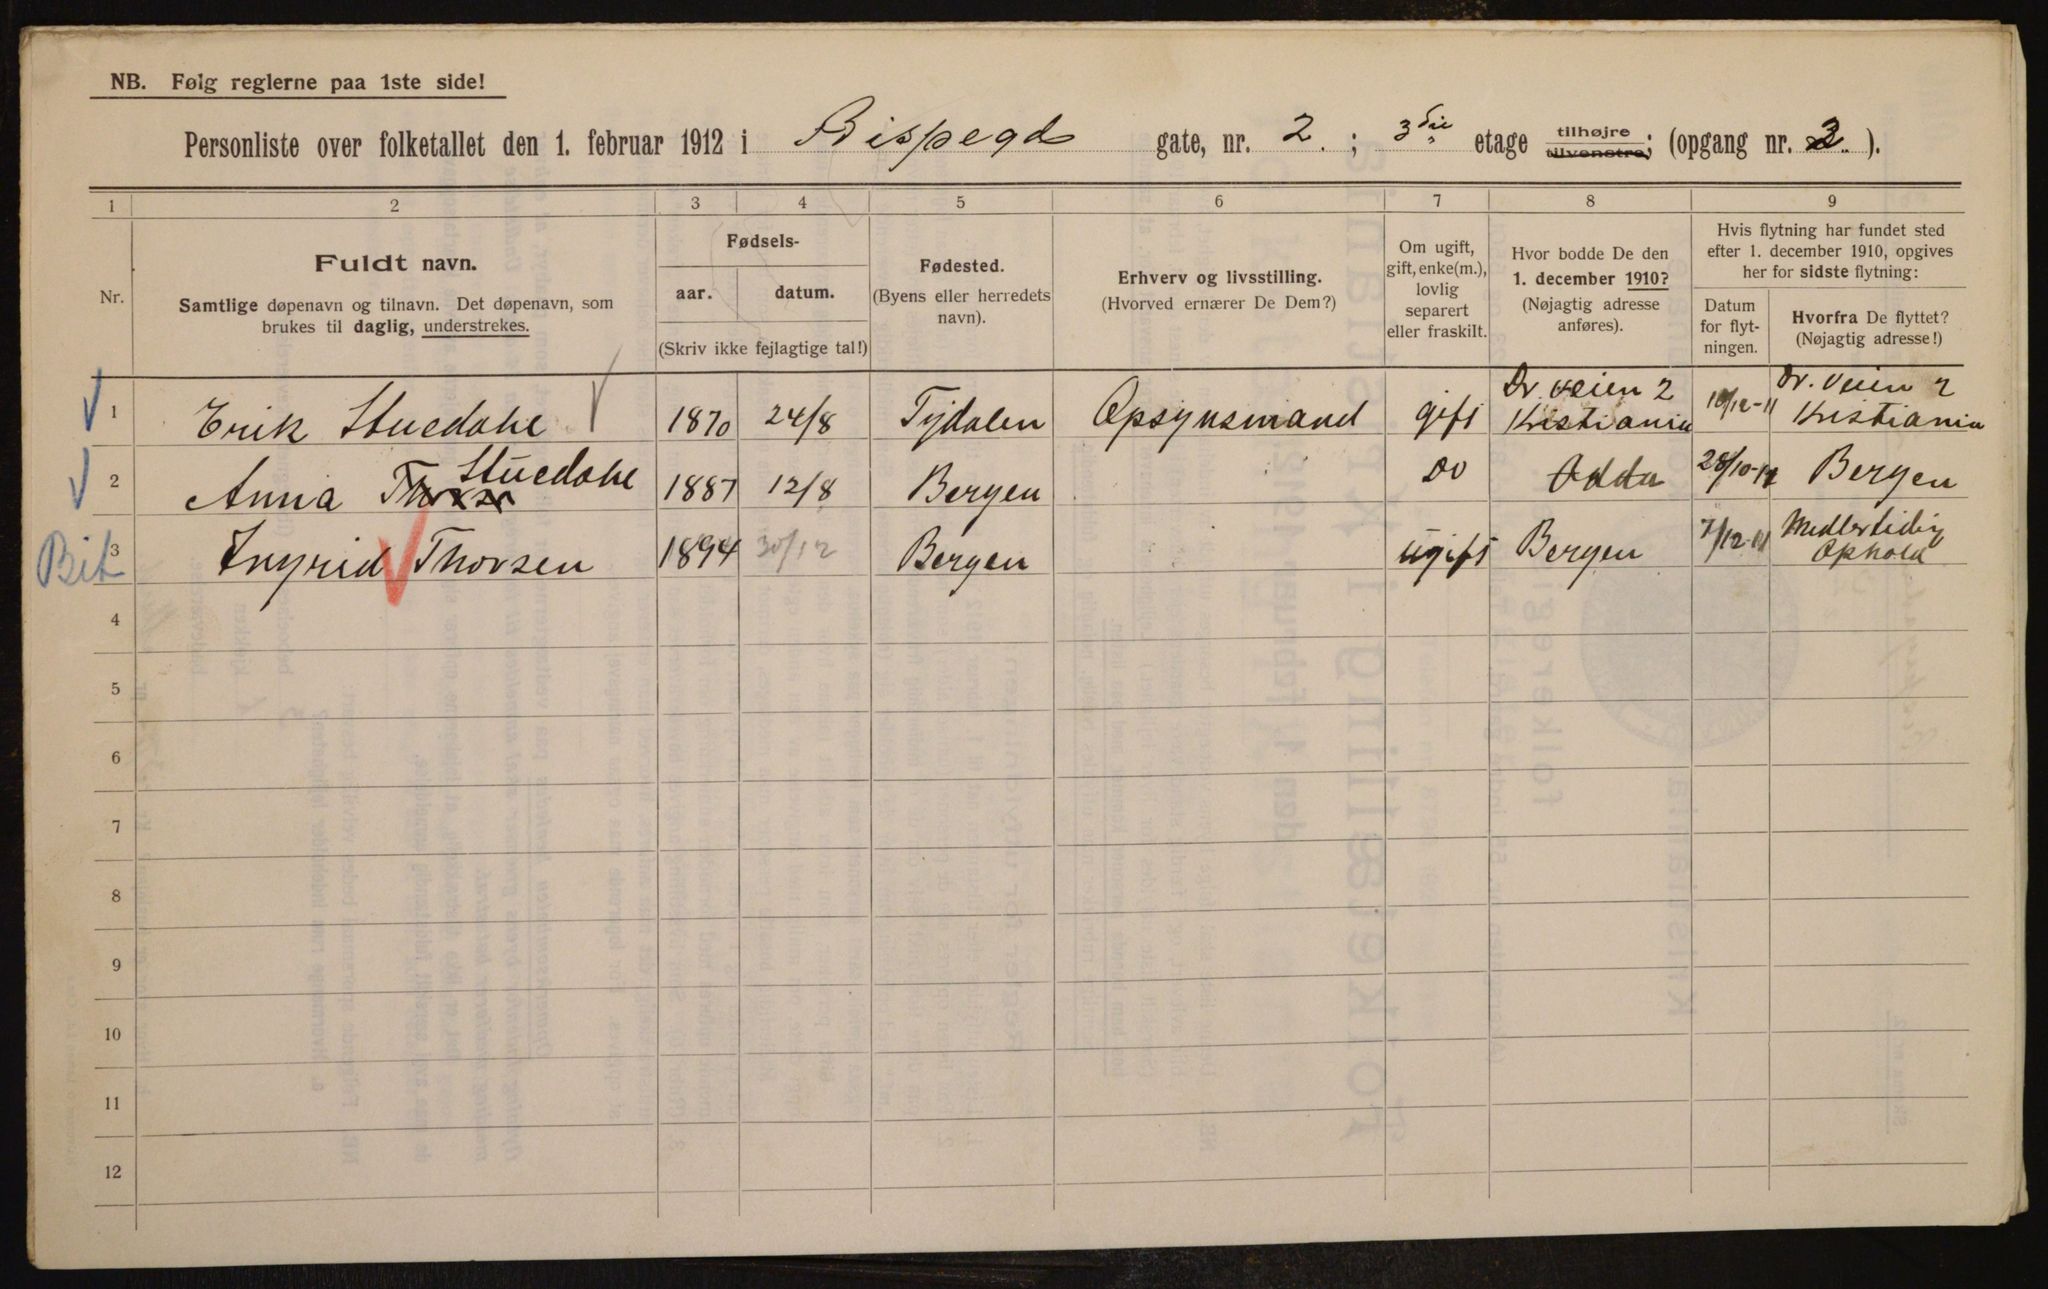 NB. Følg reglerne paa 1ste side!
Personliste over folketallet den 1. februar 1912 i Bispegd gate, nr. 2 ; 3die etage tilhøjre tilvenstre; (opgang nr. 2 ).
1 2 3 4 5 6 7 8 9
Nr.
Fuldt navn.
Samtlige døpenavn og tilnavn. Det døpenavn, som
brukes til daglig, understrekes.
Fødsels-
aar. datum.
(Skriv ikke fejlagtige tal!)
Fødested.
(Byens eller herredets
navn).
Erhverv og livsstilling.
(Hvorved ernærer De Dem?)
Om ugift,
gift, enke(m.),
lovlig
separert
eller fraskilt.
Hvor bodde De den
1. december 1910?
(Nøjagtig adresse
anføres).
Hvis flytning har fundet sted
efter 1. december 1910, opgives
her for sidste flytning:
Datum
for flyt-
ningen.
Hvorfra De flyttet?
(Nøjagtig adresse!)
1 Erik Stuedahl 1870 24/8 Tydalen Opsynsmand gift Dr. veien 2 Kristiania 10/12-11 Dr. veien 2 Kristiania
2 Anna Thorsen Stuedahl 1887 12/8 Bergen Do Odda 28/10-11 Bergen
Bit 3 Ingrid Thorsen 1894 30/12 Bergen ugift Bergen 7/12-11 Midlertidig Ophold
4
5
6
7
8
9
10
11
12